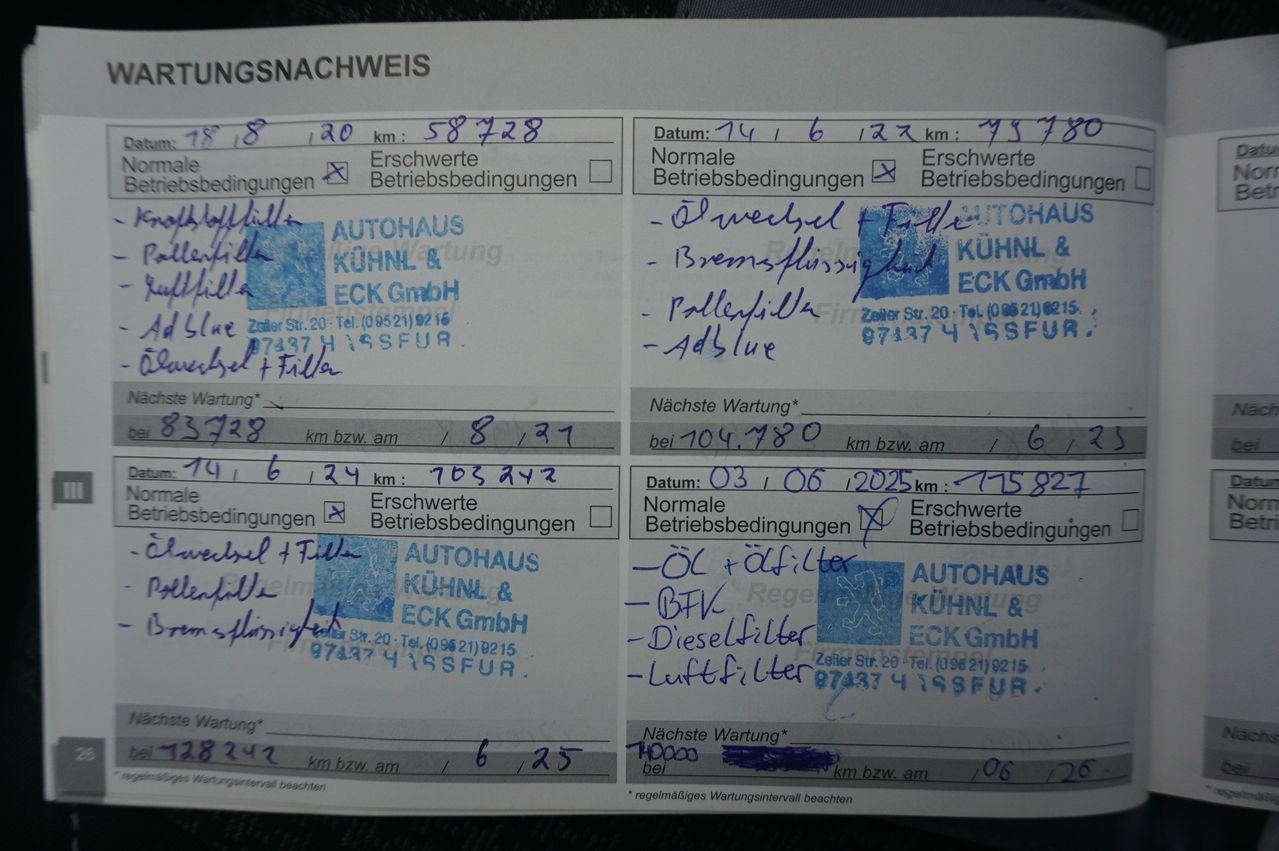 WARTUNGSNACHWEIS
Datum: 18 / 8 / 20 km: 58728
Normale Betriebsbedingungen x Erschwerte Betriebsbedingungen
- Kraftstofffilter
- Pollenfilter
- Luftfilter
- Adblue
- Ölwechsel + Filter
AUTOHAUS
KÜHNL &
ECK GmbH
Zeiler Str. 20 · Tel. (09521) 9215
97437 HASSFUR.
Nächste Wartung*
bei 83728 km bzw. am / 8 / 21
Datum: 14 / 6 / 22 km: 79780
Normale Betriebsbedingungen x Erschwerte Betriebsbedingungen
- Ölwechsel + Filter
- Bremsflüssigkeit
- Pollenfilter
- Adblue
AUTOHAUS
KÜHNL &
ECK GmbH
Zeiler Str. 20 · Tel. (09521) 9215
97437 HASSFUR.
Nächste Wartung*
bei 104.780 km bzw. am / 6 / 23
Datum: 14 / 6 / 24 km: 103242
Normale Betriebsbedingungen x Erschwerte Betriebsbedingungen
- Ölwechsel + Filter
- Pollenfilter
- Bremsflüssigkeit
AUTOHAUS
KÜHNL &
ECK GmbH
Zeiler Str. 20 · Tel. (09521) 9215
97437 HASSFUR.
Nächste Wartung*
bei 128242 km bzw. am / 6 / 25
* regelmäßiges Wartungsintervall beachten
Datum: 03 / 06 / 2025 km: 115827
Normale Betriebsbedingungen x Erschwerte Betriebsbedingungen
- Öl + Ölfilter
- BFK
- Dieselfilter
- Luftfilter
Regelmäßige Wartung
Firmenstempel
AUTOHAUS
KÜHNL &
ECK GmbH
Zeiler Str. 20 · Tel. (09521) 9215
97437 HASSFUR.
Nächste Wartung*
140000
bei km bzw. am / 06 / 26
* regelmäßiges Wartungsintervall beachten
III
26